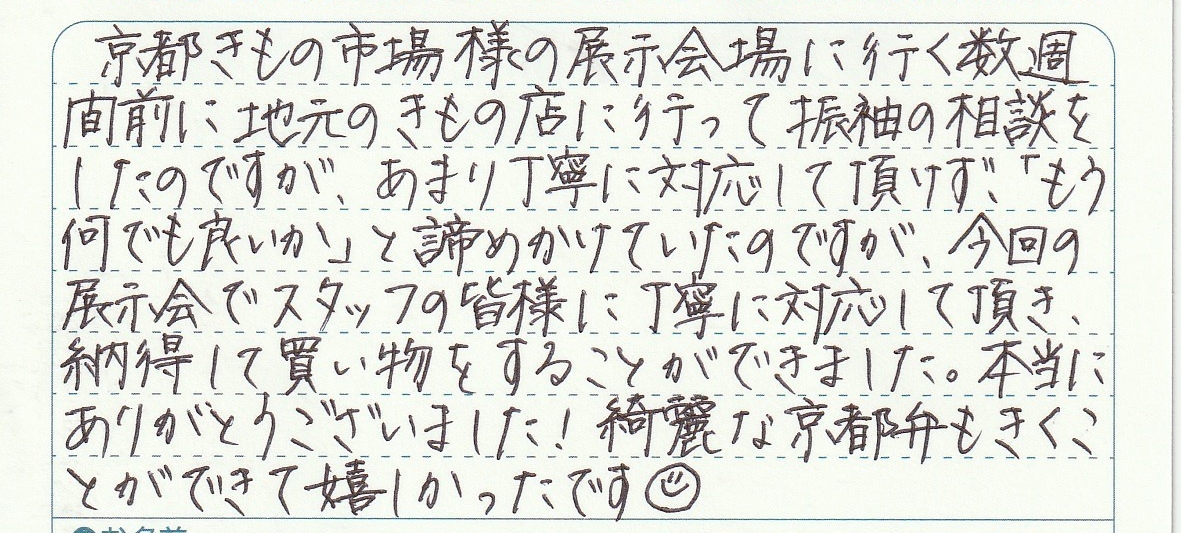 京都きもの市場様の展示会場に行く数週
間前に地元のきもの店に行って振袖の相談を
したのですが、あまり丁寧に対応して頂けず、「もう
何でも良いか」と諦めかけていたのですが、今回の
展示会でスタッフの皆様に丁寧に対応して頂き、
納得して買い物をすることができました。本当に
ありがとうございました！綺麗な京都弁もきくこ
とができて嬉しかったです☺